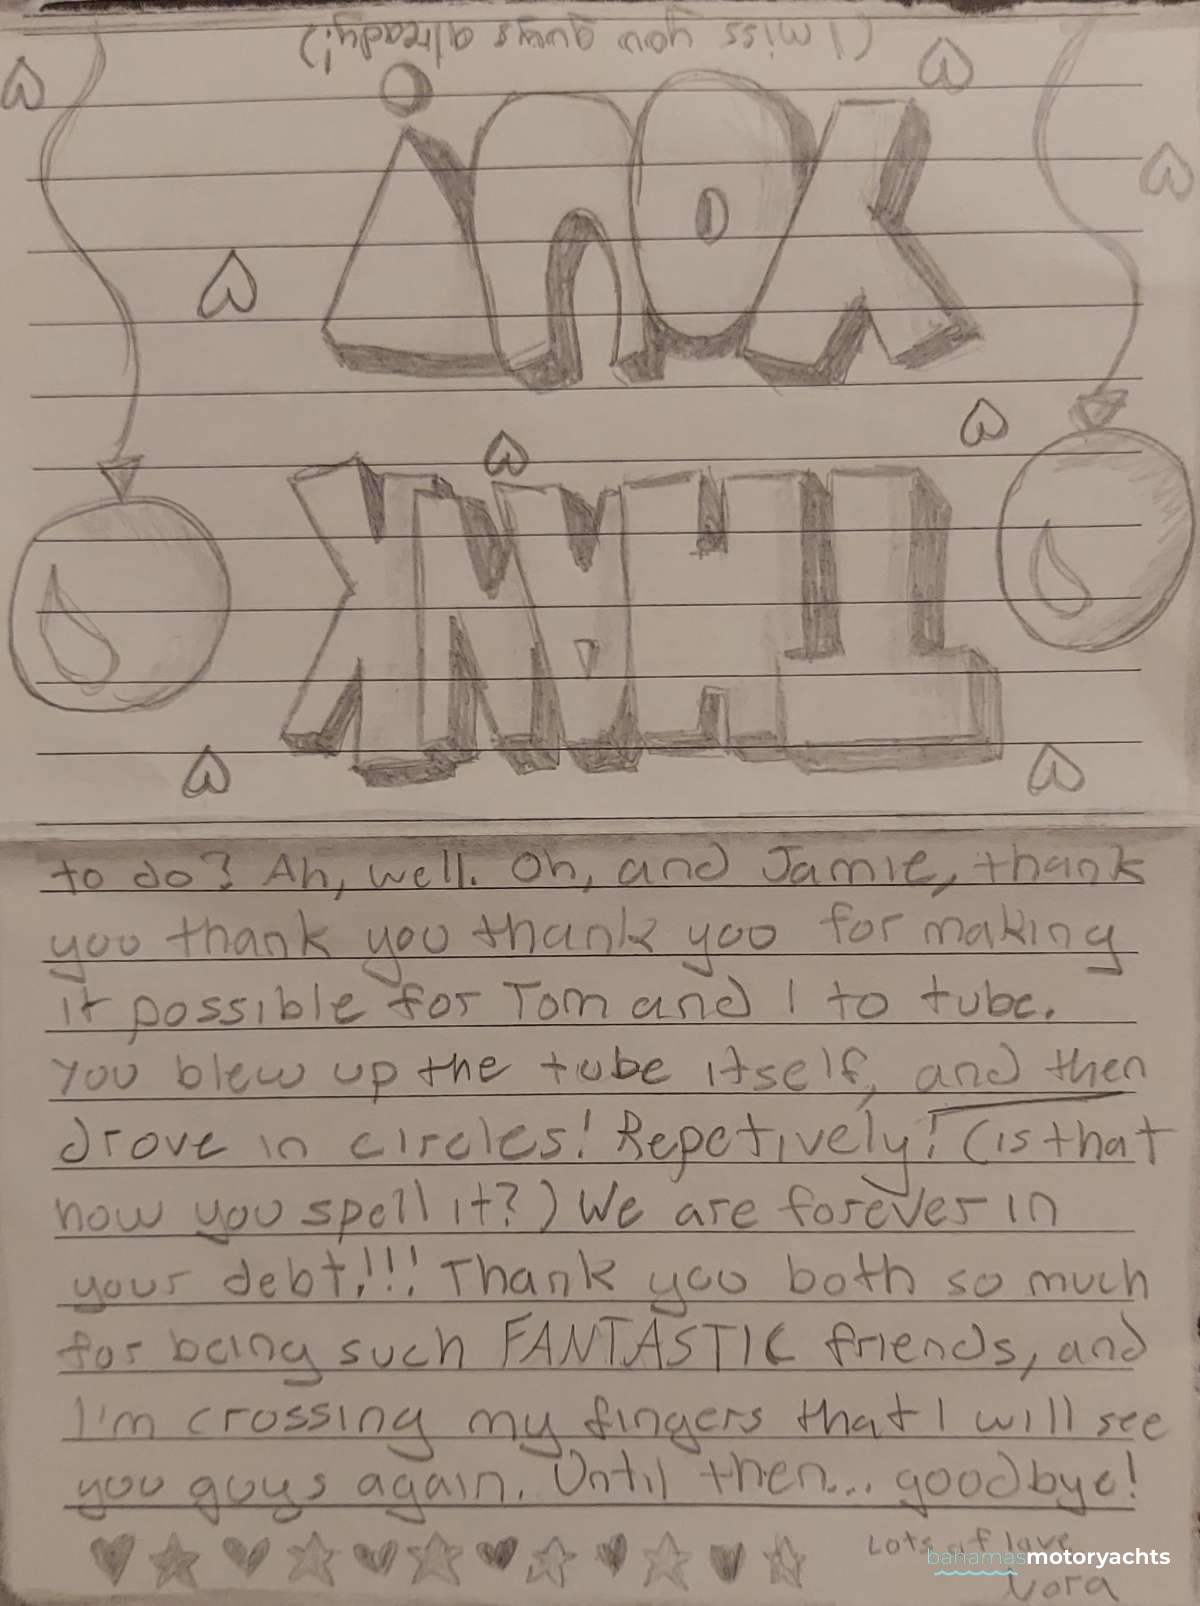 (I miss you guys already!)
THANK
YOU!
to do? Ah, well. Oh, and Jamie, thank
you thank you thank you for making
it possible for Tom and I to tube.
You blew up the tube itself, and then
drove in circles! Repetively! (is that
how you spell it?) We are forever in
your debt!!! Thank you both so much
for being such FANTASTIC friends, and
I'm crossing my fingers that I will see
you guys again. Until then... goodbye!
Lots of love,
Nora
bahamasmotoryachts